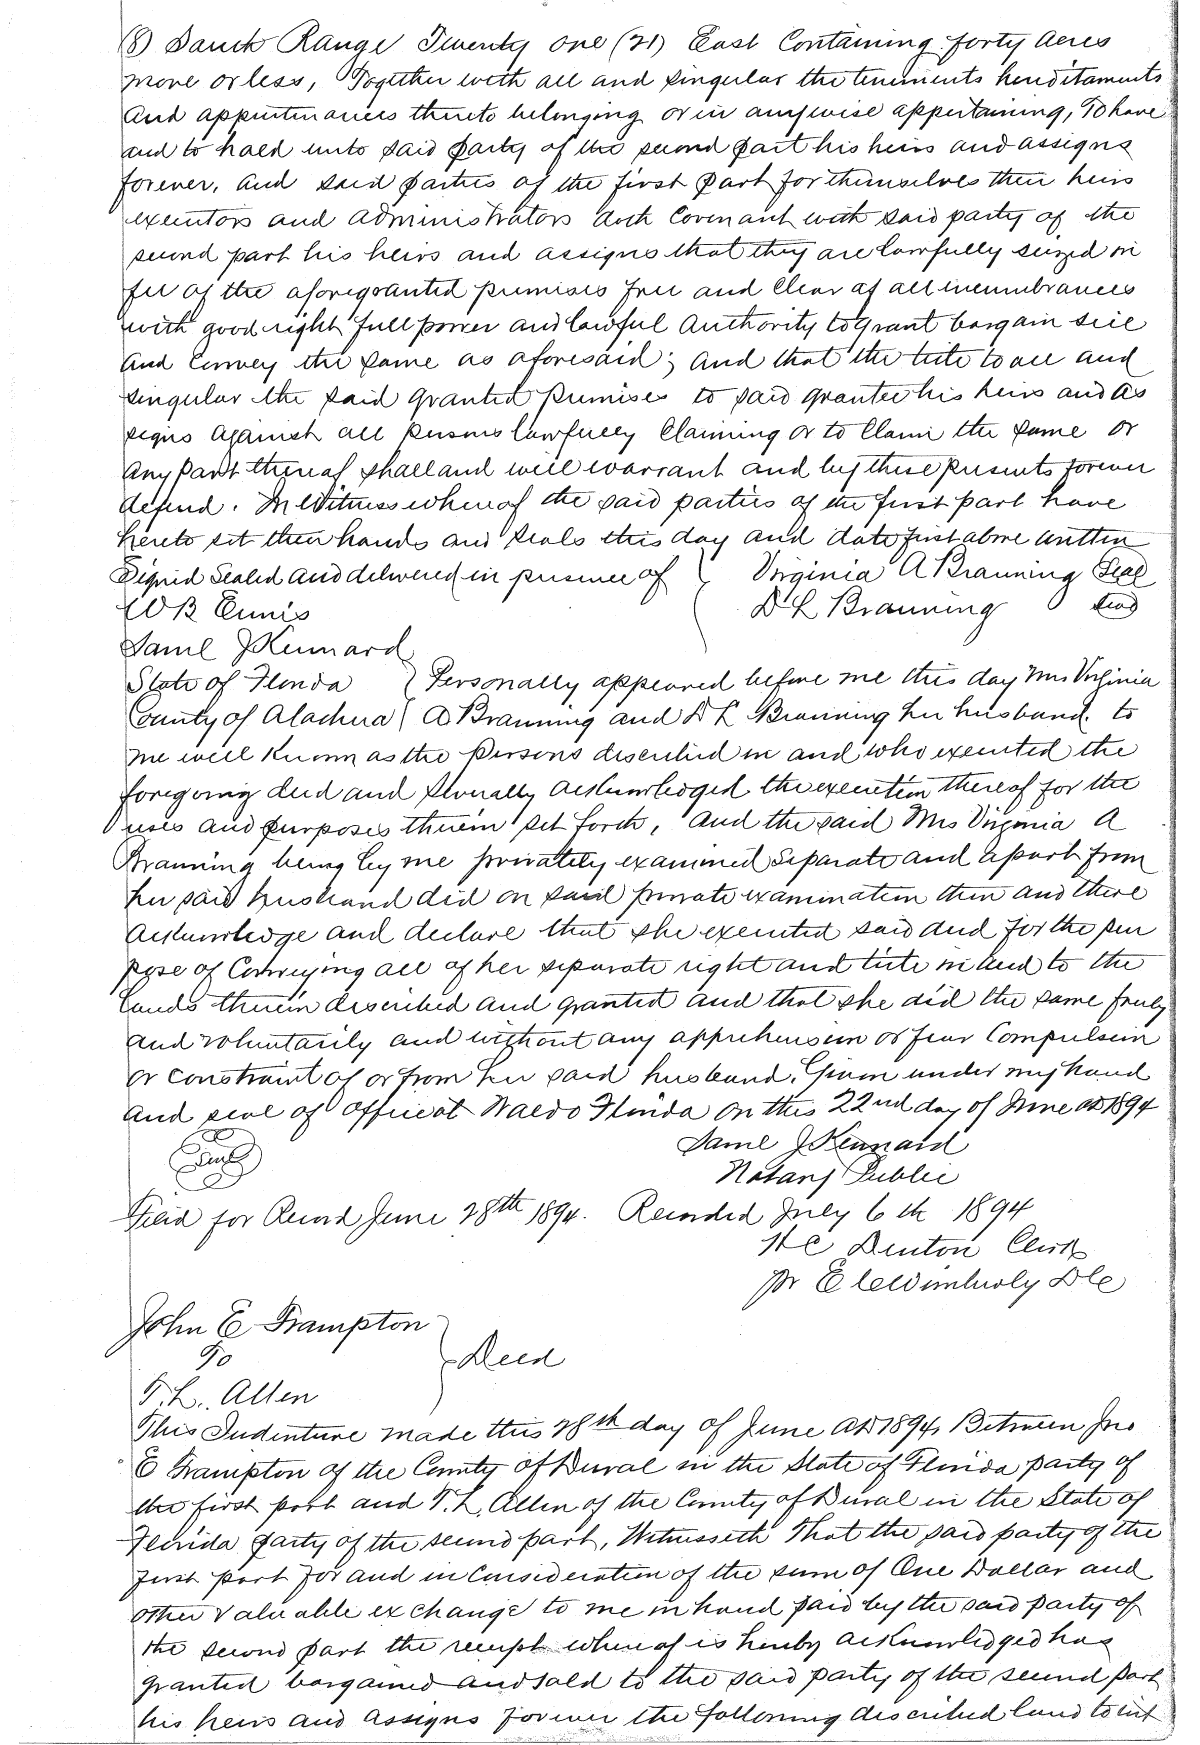 (8) South Range Twenty one (21) East Containing forty Acres
more or less, Together with all and singular the tenements hereditaments
and appurtenances thereto belonging or in anywise appertaining, To have
and to hold unto said party of the second part his heirs and assigns
forever, and said parties of the first part for themselves their heirs
executors and administrators doth Covenant with said party of the
second part his heirs and assigns that they are lawfully seized in
fee of the aforegranted premises free and Clear of all incumbrances
with good right full power and lawful Authority to Grant bargain sell
and Convey the same as aforesaid; and that the title to all and
singular the said granted premises to said grantee his heirs and as
signs against all persons lawfully Claiming or to Claim the same or
any part thereof shall and will warrant and by these presents forever
defend. In Witness whereof the said parties of the first part have
hereto set their hands and seals this day and date first above written
Signed Sealed and delivered in presence of } Virginia A Branning Seal
W B Ennis D L Branning Seal
Saml J Kennard
State of Florida } Personally appeared before me this day Mrs Virginia
County of Alachua } A Branning and D L Branning her husband, to
me well known as the persons described in and who executed the
foregoing deed and severally acknowledged the execution thereof for the
uses and purposes therein set forth, and the said Mrs Virginia A
Branning being by me privately examined separate and apart from
her said husband did on said private examination then and there
acknowledge and declare that she executed said deed for the pur
pose of Conveying all of her separate right and title in and to the
lands therein described and granted and that she did the same freely
and voluntarily and without any apprehension or fear Compulsion
or constraint of or from her said husband. Given under my hand
and seal of office at Waldo Florida on this 22nd day of June AD 1894
Seal Saml J Kennard
Notary Public
Filed for Record June 28th 1894. Recorded July 6th 1894
H C Denton Clerk
pr E C Wimberly D C
John E Frampton
To } Deed
T. L. Allen
This Indenture made this 28th day of June AD 1894, Between Jno
E Frampton of the County of Duval in the State of Florida party of
the first part and T. L. Allen of the County of Duval in the State of
Florida party of the second part, Witnesseth That the said party of the
first part for and in Consideration of the sum of One Dollar and
other valuable exchange to me in hand paid by the said party of
the second part the receipt whereof is hereby acknowledged has
granted bargained and sold to the said party of the second part
his heirs and assigns forever the following described land to wit